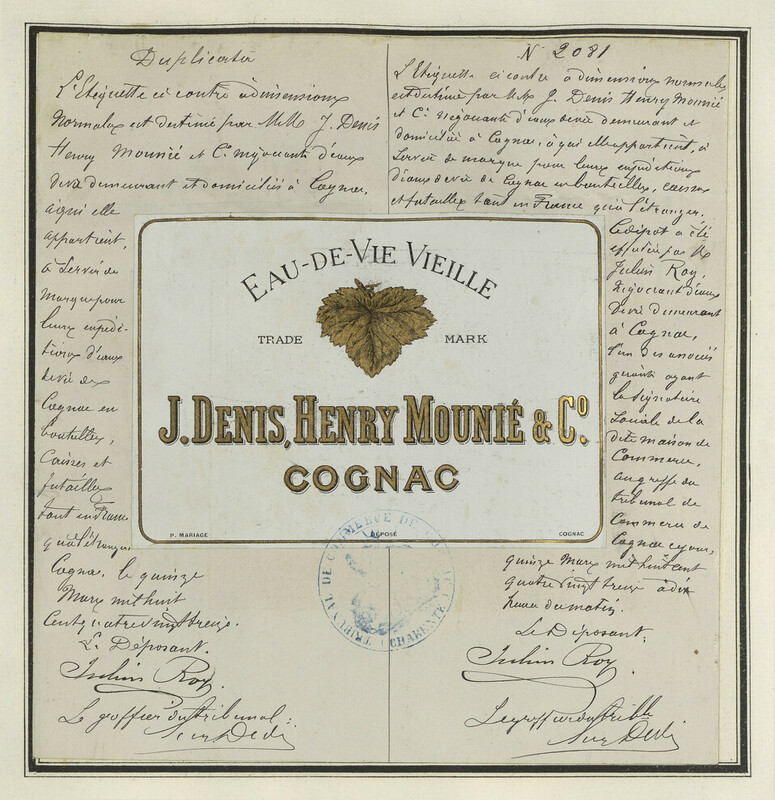 Duplicata
L'Etiquette ci contre à dimensions
normales est destinée par MM J. Denis
Henry Mounié et Cie négociants d'eaux
de vie demeurant et domiciliés à Cognac,
à qui elle
appartient,
à servir de
marque pour
leurs expédi-
tions d'eaux
de vie de
Cognac en
bouteilles,
caisses et
futailles
tant en France
qu'à l'étranger
Cognac, le quinze
Mars mil huit
cent quatre vingt treize.
Le Déposant.
Julien Roy
Le greffier du tribunal :
N° 2081
L'Etiquette ci contre à dimensions normales
est destinée par MM. J. Denis Henry Mounié
et Cie négociants d'eaux de vie demeurant et
domiciliés à Cognac, à qui elle appartient, à
servir de marque pour leurs expéditions
d'eaux de vie de Cognac en bouteilles, caisses
et futailles tant en France qu'à l'étranger.
Ce dépot a été
effectué par Mr
Julien Roy,
négociant d'eaux
de vie demeurant
à Cognac,
l'un des associés
gérants ayant
la signature
sociale de la
dite maison de
Commerce,
au greffe du
tribunal de
Commerce de
Cognac ce jour,
quinze Mars mil huit cent
quatre vingt treize à dix
heures du matin.
Le Déposant,
Julien Roy
Le greffier du tribl
EAU-DE-VIE VIEILLE
TRADE MARK
J. DENIS, HENRY MOUNIÉ & Co.
COGNAC
P. MARIAGE DÉPOSÉ COGNAC
TRIBUNAL DE COMMERCE DE COGNAC
CHARENTE